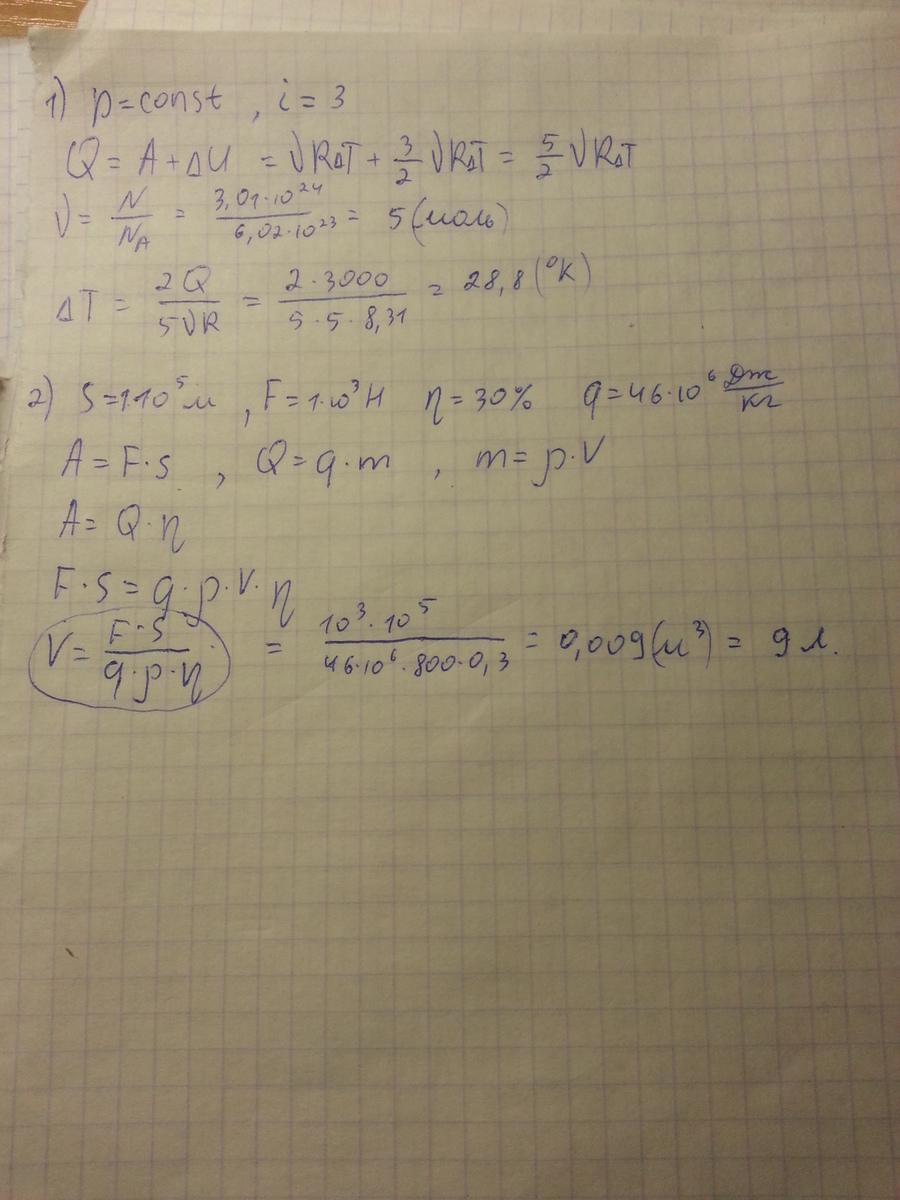 1) p=const , i = 3
Q = A + ΔU = νRΔT + 3/2 νRΔT = 5/2 νRΔT
ν = N/N_A = 3,01·10²⁴/6,02·10²³ = 5 (моль)
ΔT = 2Q/5νR = 2·3000/5·5·8,31 = 28,8 (°K)
2) S=1·10⁵ м , F=1·10³ Н η=30% q=46·10⁶ Дж/кг
A = F·s , Q=q·m , m=ρ·V
A= Q·η
F·S = q·ρ·V·η
V = F·S/q·ρ·η = 10³·10⁵/46·10⁶·800·0,3 = 0,009(м³) = 9 л.